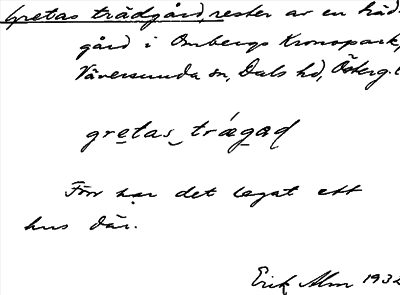 Gretas trädgård, rester av en träd-
gård i Ombergs Kronopark,
Väversunda sn, Dals hd, Österg.
gretas_trágad
Förr har det legat ett
hus där.
Erik Alm 1932